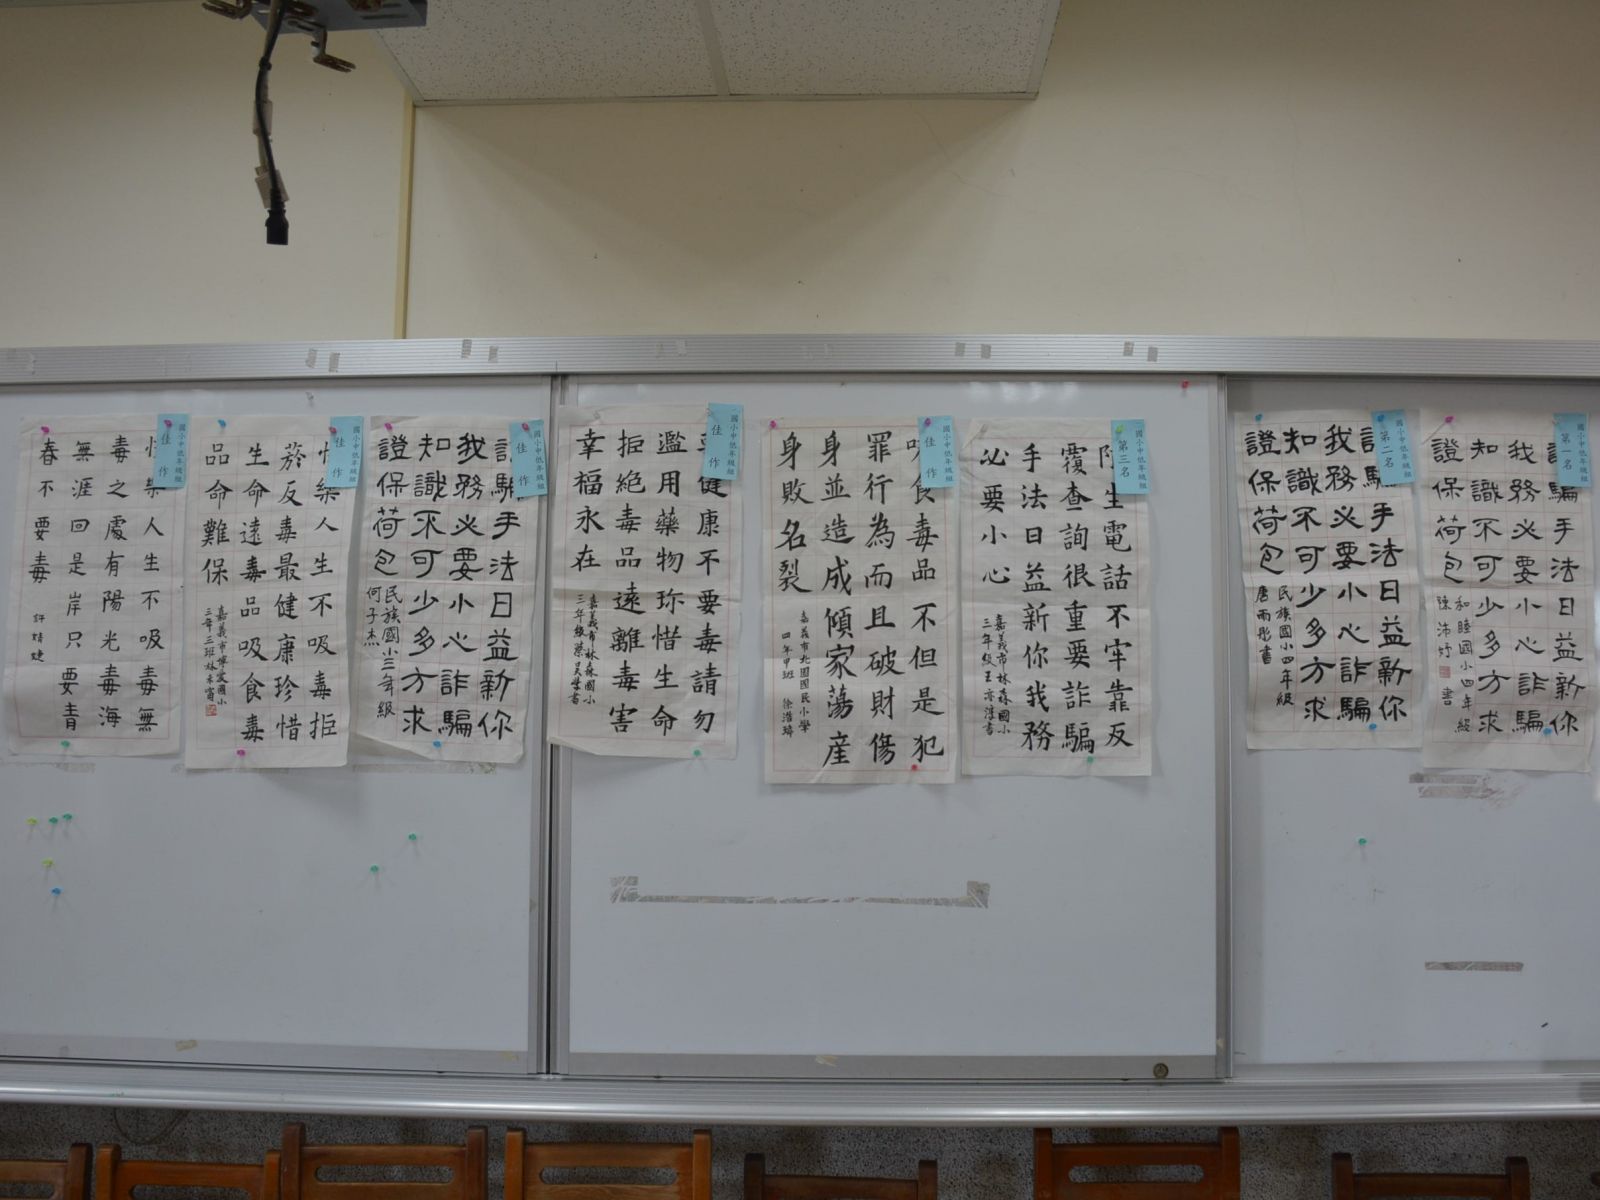 國小中低年級組
第一名
騙手法日益新你
我務必要小心詐騙
知識不可少多方求
證保荷包
和睦國小四年級
陳沛妤書
國小中低年級組
第二名
騙手法日益新你
我務必要小心詐騙
知識不可少多方求
證保荷包
民族國小四年級
唐雨彤書
國小中低年級組
第三名
生電話不牢靠反
覆查詢很重要詐騙
手法日益新你我務
必要小心
嘉義市林森國小
三年級王亦淳書
國小中低年級組
佳作
食毒品不但是犯
罪行為而且破財傷
身並造成傾家蕩產
身敗名裂
嘉義市北園國民小學
四年甲班 徐浩瑋
國小中低年級組
佳作
健康不要毒請勿
濫用藥物珍惜生命
拒絕毒品遠離毒害
幸福永在
嘉義市林森國小
三年級蔡昊學書
國小中低年級組
佳作
騙手法日益新你
我務必要小心詐騙
知識不可少多方求
證保荷包
民族國小三年級
何子杰
佳作
樂人生不吸毒拒
菸反毒最健康珍惜
生命遠毒品吸食毒
品命難保
嘉義市博愛國小
三年三班林禾甯
國小中低年級組
佳作
樂人生不吸毒無
毒之處有陽光毒海
無涯回是岸只要青
春不要毒
許婕